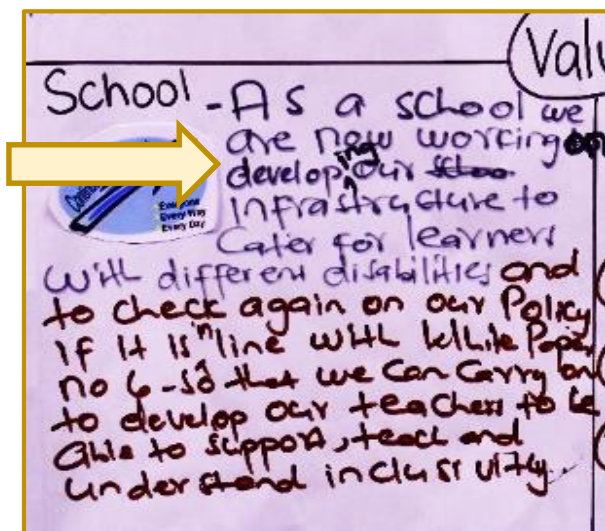 Valu
School - As a school we
are now working on
developing our schoo
infrastructure to
Cater for learners
with different disabilities and
to check again on our Policy
if it is in line with White Paper
no 6 - so that we can carry on
to develop our teachers to be
able to support, teach and
understand inclusivity.
Everyone
Every Way
Every Day